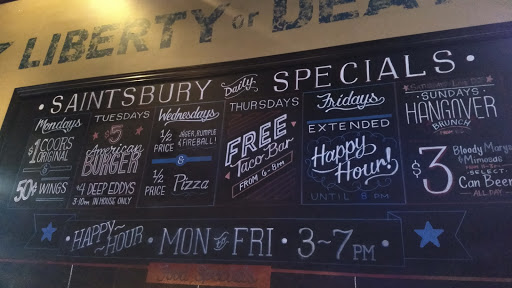 LIBERTY OR DEAT
SAINTSBURY Daily SPECIALS
Mondays
$1 COORS
ORIGINAL
&
50¢ WINGS
TUESDAYS
$5
American
BURGER
$4 DEEP EDDYS
IN HOUSE ONLY
Wednesdays
1/2 PRICE
JÄGER, RUMPLE
& FIREBALL!
&
1/2 PRICE
Pizza
THURSDAYS
FREE
Taco Bar
FROM 6-8PM
Fridays
EXTENDED
Happy
Hour!
UNTIL 8 PM
SUNDAYS
HANGOVER
BRUNCH
$3
Bloody Marys
& Mimosas
SELECT
Can Beer
ALL DAY
HAPPY HOUR · MON to FRI · 3~7PM